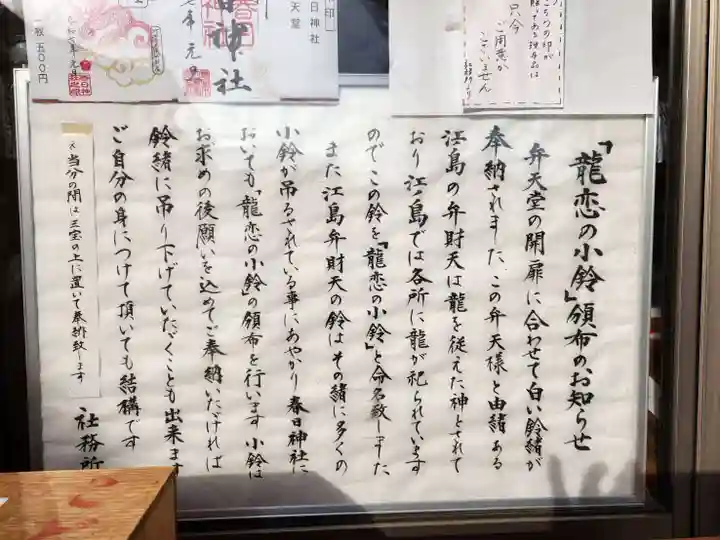 「龍恋の小鈴」頒布のお知らせ
弁天堂の開扉に合わせて白い鈴緒が
奉納されました、この弁天様と由緒ある
江島の弁財天は龍を従えた神とされて
おり江ノ島では各所に龍が祀られています
のでこの鈴を「龍恋の小鈴」と命名致しました、
また江島弁財天の鈴はその緒に多くの
小鈴が吊るされている事にあやかり春日神社に
おいても「龍恋の小鈴」の頒布を行います 小鈴は
お求めの後願いを込めてご奉納いただければ
鈴緒に吊り下げていただくことも出来ます
ご自分の身につけて頂いても結構です
社務所
※当分の間は三宝の上に置いて奉排致します
只今
ご用意が
ございません
日神社
天堂
神社
年元
一枚 五〇〇円